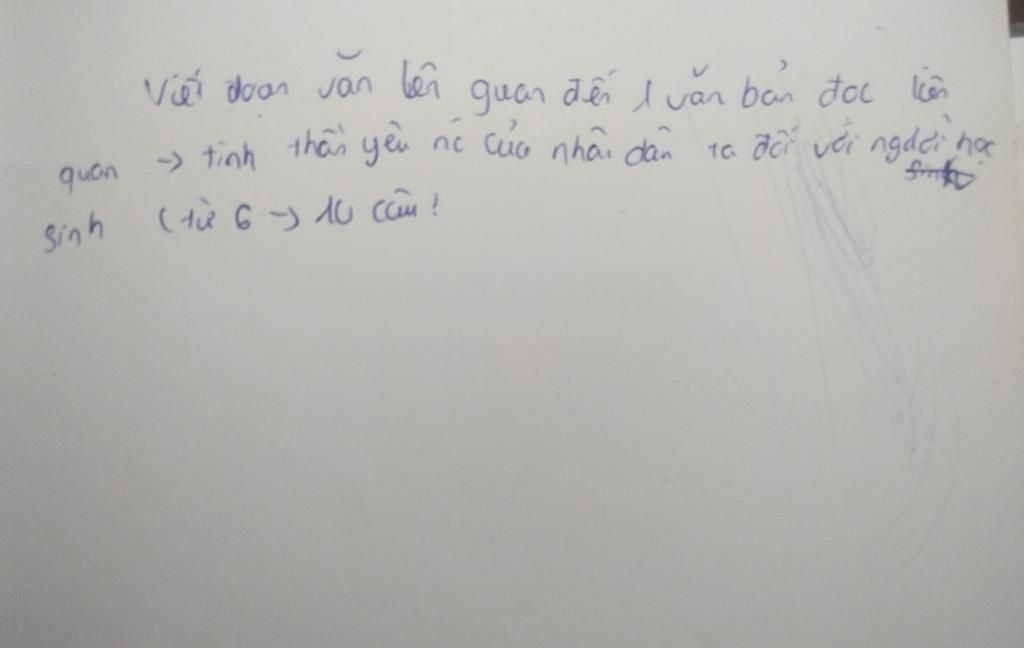 Viết đoạn văn liên quan đến 1 văn bản đọc liên
quan → tinh thần yêu nc của nhân dân ta đối với người học
sinh (từ 6 → 10 câu!